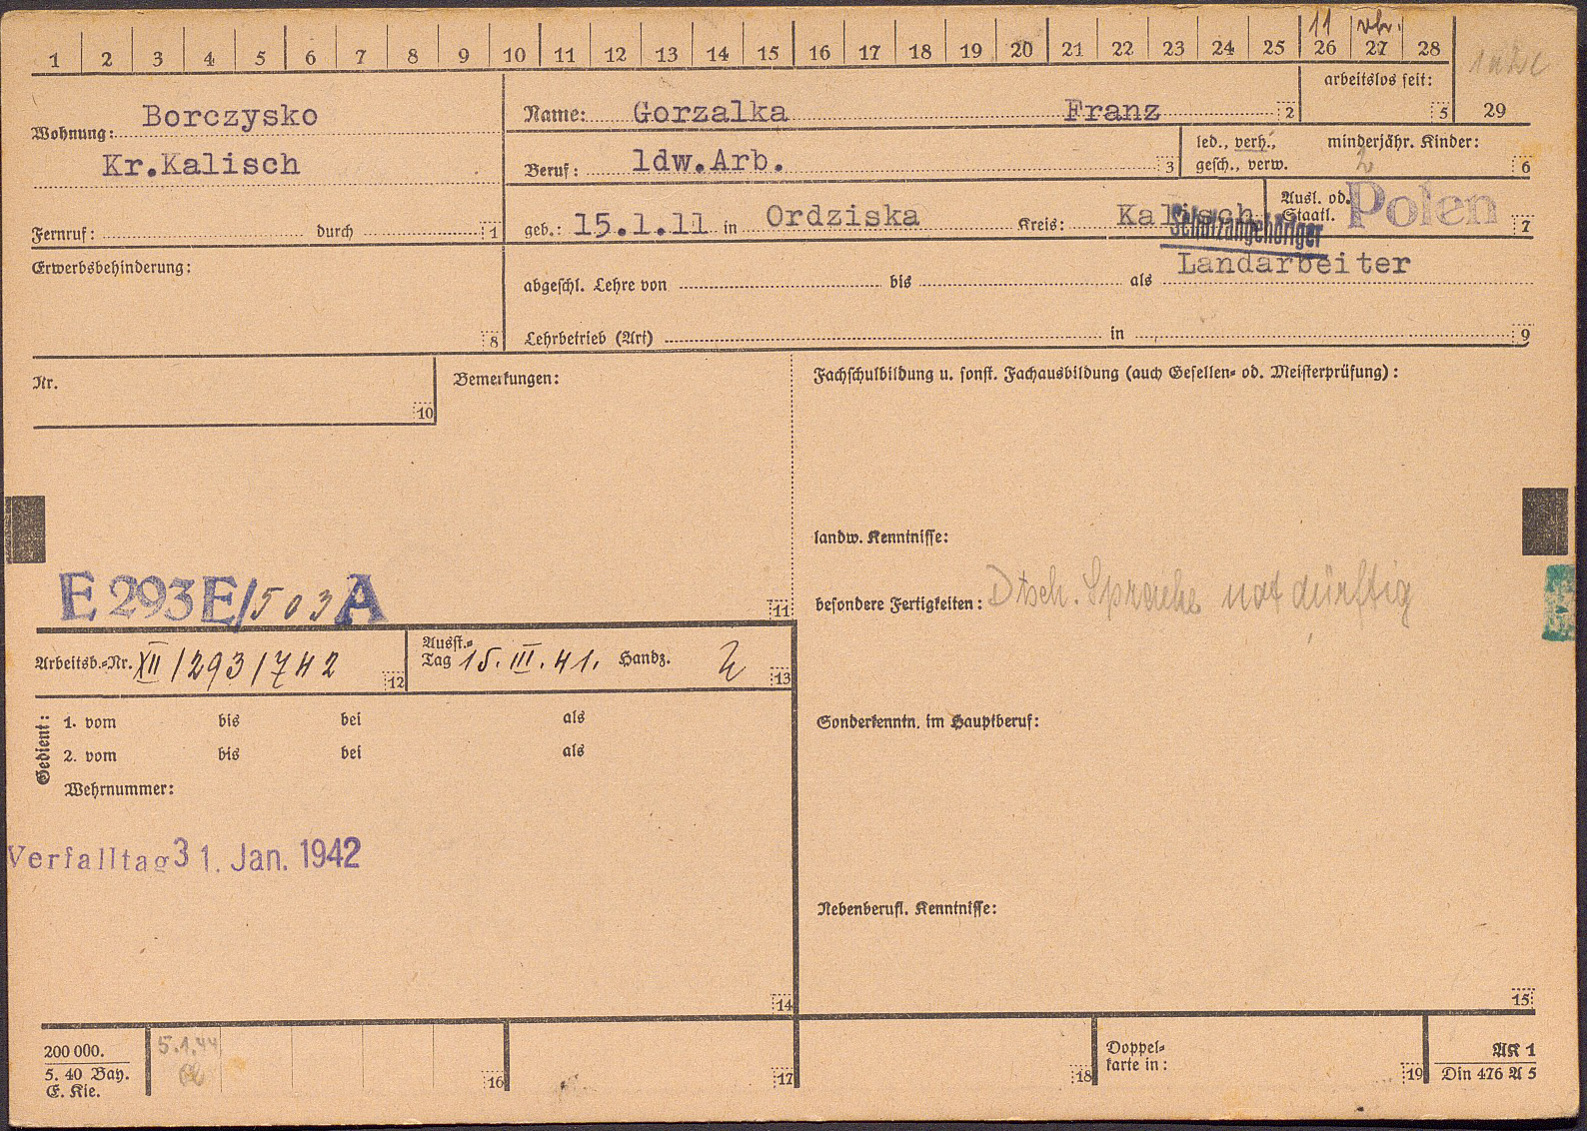 1 2 3 4 5 6 7 8 9 10 11 12 13 14 15 16 17 18 19 20 21 22 23 24 25 26 27 28
11 vh.
arbeitslos seit:
5
29
Wohnung: Borczysko
Kr.Kalisch
Name: Gorzalka Franz 2
Beruf: ldw.Arb. 3
led., verh.,
gesch., verw.
minderjähr. Kinder:
2
6
Fernruf: durch 1
geb.: 15.1.11 in Ordziska Kreis: Kalisch
Ausl. od.
Staatl.
Polen
7
Schutzangehöriger
Erwerbsbehinderung:
8
Landarbeiter
abgeschl. Lehre von bis als
Lehrbetrieb (Art) in 9
Nr.
10
Bemerkungen:
Fachschulbildung u. sonst. Fachausbildung (auch Gesellen- od. Meisterprüfung):
landw. Kenntnisse:
E 293E/503A
11
besondere Fertigkeiten: Dtsch. Sprache notdürftig
Arbeitsb.-Nr. XII/293/742 12
Ausst.-
Tag 15.III.41. Handz.
13
Gedient:
1. vom bis bei als
2. vom bis bei als
Wehrnummer:
Sonderkenntn. im Hauptberuf:
Verfalltag 31. Jan. 1942
Nebenberufl. Kenntnisse:
14
15
200 000.
5. 40 Bay.
E. Kle.
5.1.44
16
17
18
Doppel-
karte in:
19
AK 1
Din 476 A 5